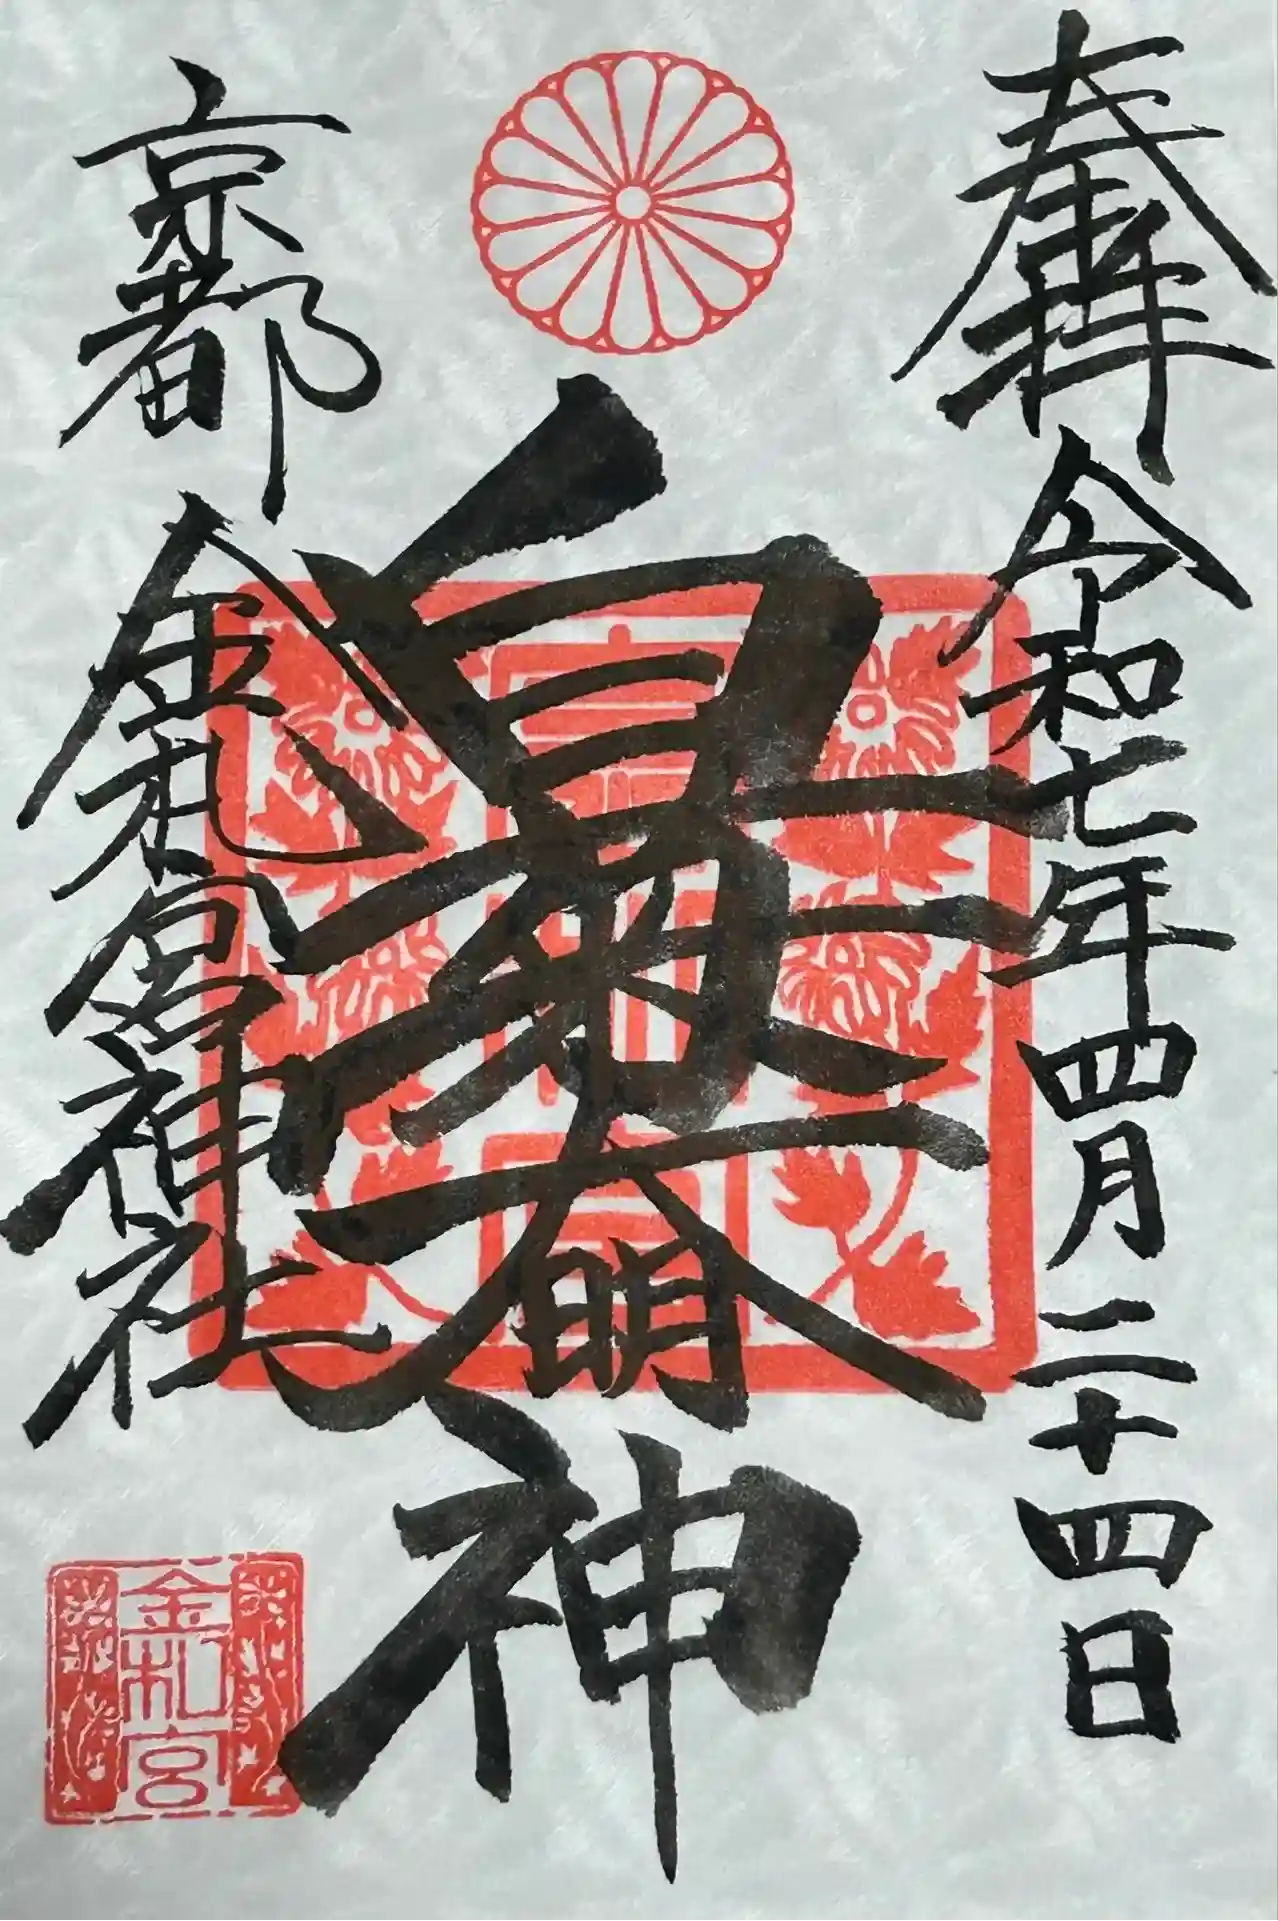 奉拝 令和七年四月二十四日
白菊大明神
京都 金札宮神社
金札宮